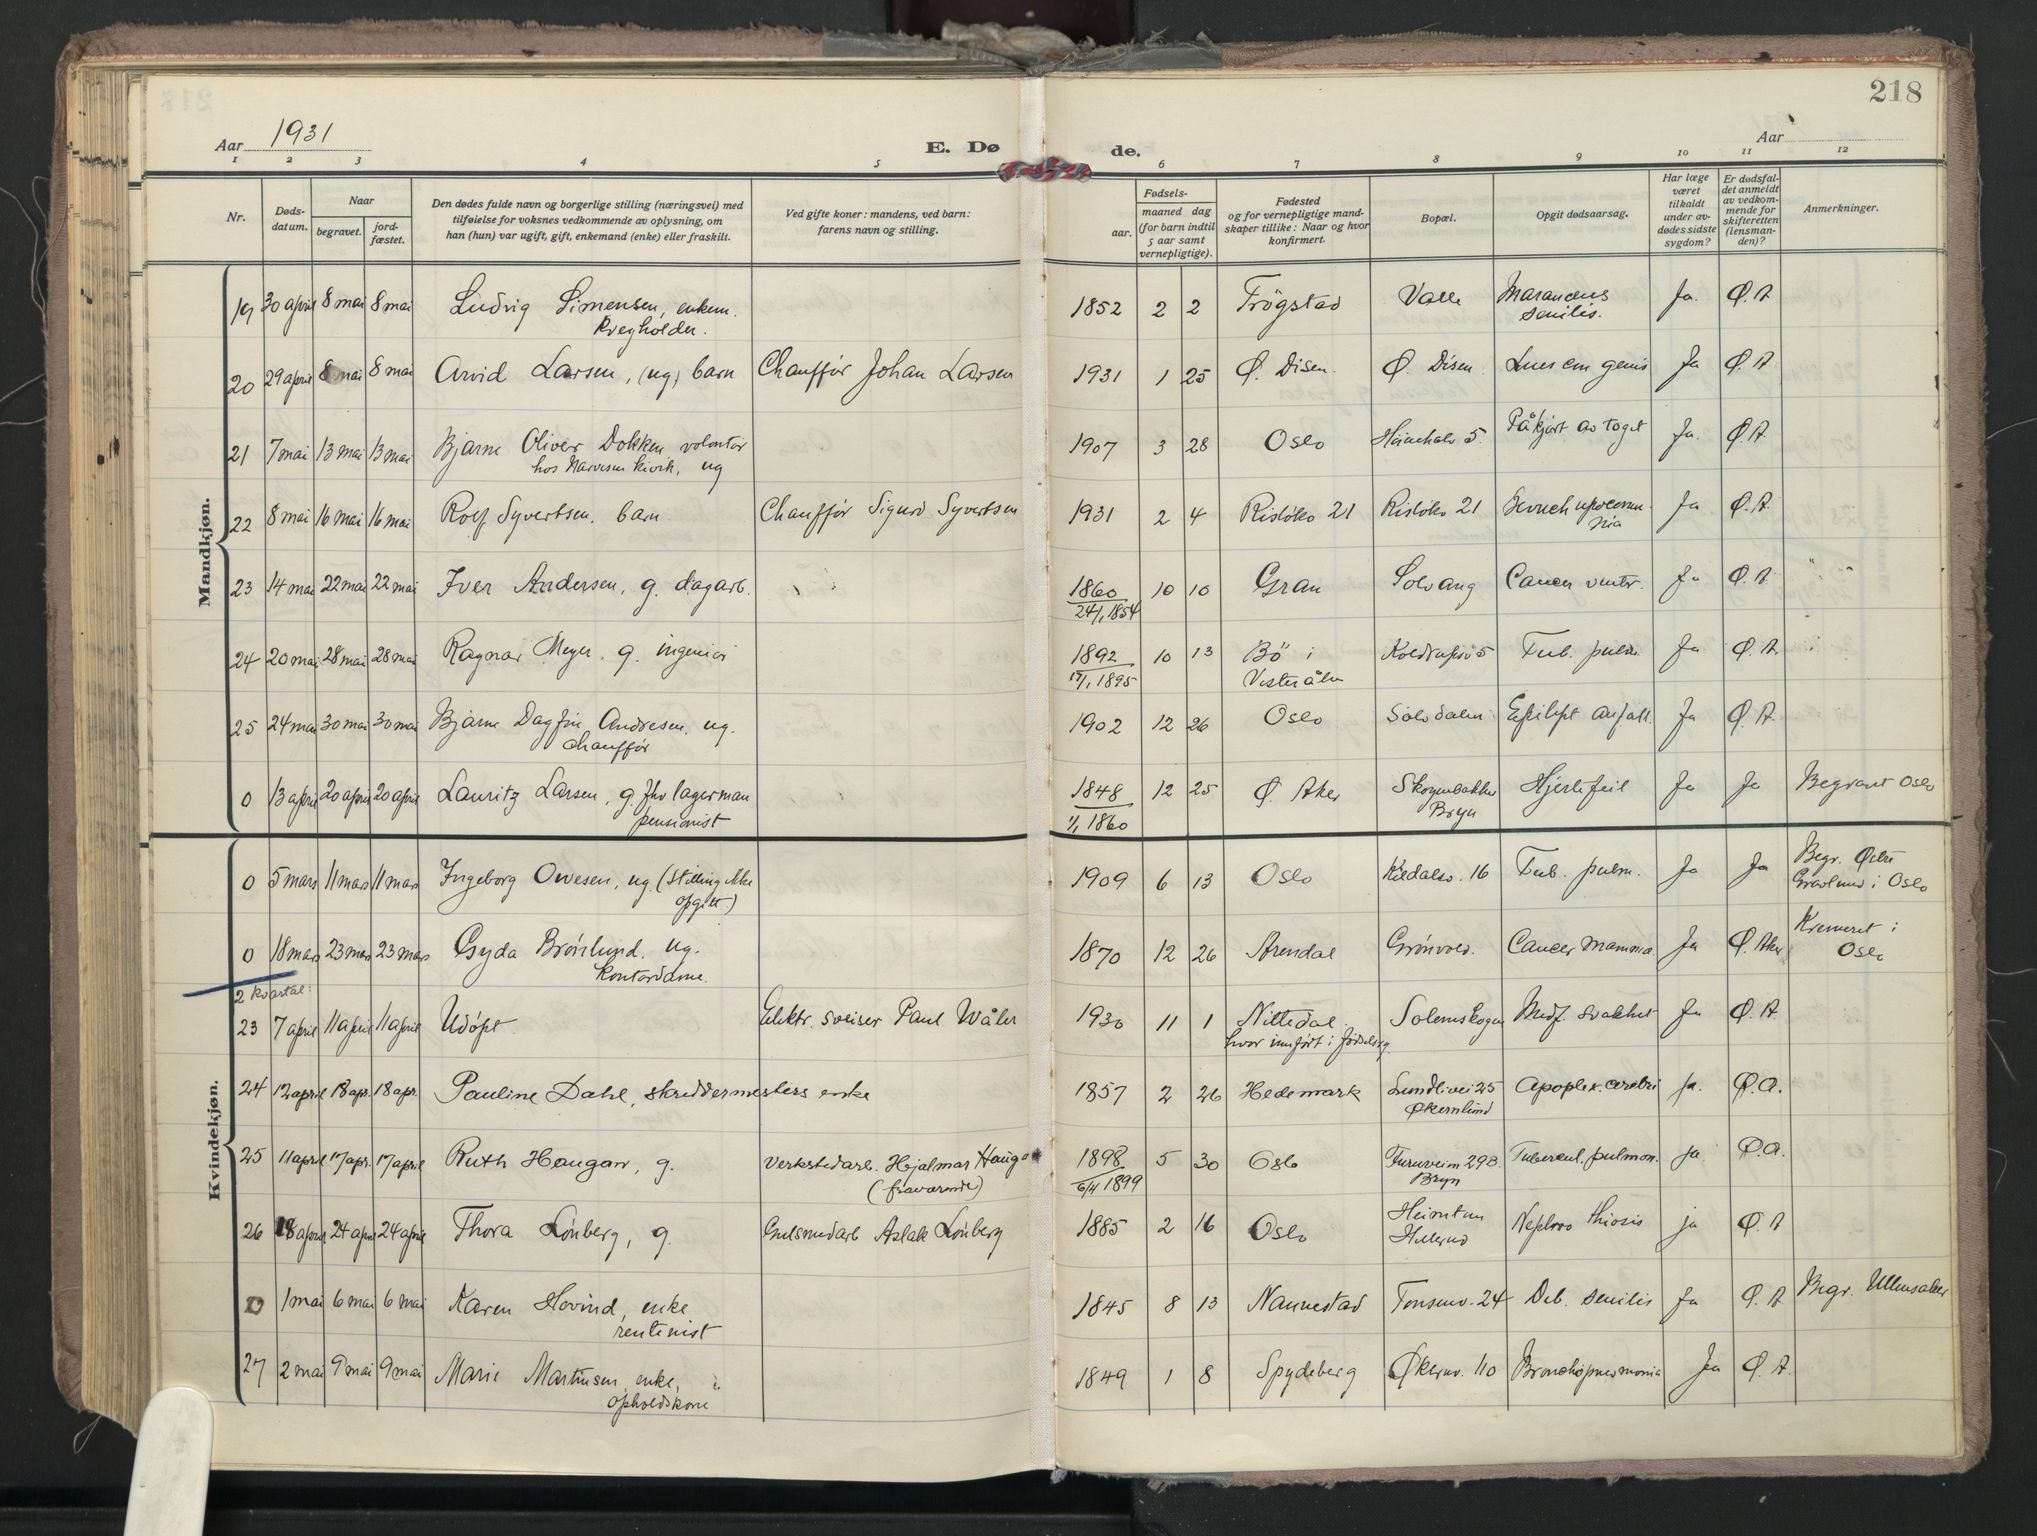 218
Aar 1931
E. Dø de.
Aar
1 2 3 4 5 6 7 8 9 10 11 12
Nr.
Døds-
datum.
Naar
begravet.
jord-
fæstet.
Den dødes fulde navn og borgerlige stilling (næringsvei) med
tilføielse for voksnes vedkommende av oplysning, om
han (hun) var ugift, gift, enkemand (enke) eller fraskilt.
Ved gifte koner: mandens, ved barn:
farens navn og stilling.
Fødsels-
aar.
maaned dag
(for barn indtil
5 aar samt
vernepligtige).
Fødested
og for vernepligtige mand-
skaper tillike: Naar og hvor
konfirmert.
Bopæl.
Opgit dødsaarsag.
Har læge
været
tilkaldt
under av-
dødes sidste
sygdom?
Er dødsfal-
det anmeldt
av vedkom-
mende for
skifteretten
(lensman-
den)?
Anmerkninger.
Mandkjøn.
19 30 april 8 mai 8 mai Ludvig Simensen, enkem. 1852 2 2 Trögstad Valle Marasmus Ja. Ø. A
senilis.
20 29 april 8 mai 8 mai Arvid Larsen, (ug) barn Chauffør Johan Larsen 1931 1 25 Ø. Disen. Ø. Disen. Lues congenis Ja Ø. A.
21 7 mai 13 mai 13 mai Bjarne Oliver Dokken, volontør 1907 3 28 Oslo 5. Påkjørt av toget Ja. Ø. A.
hos Narvesen kiosk, ug
22 8 mai 16 mai 16 mai Rolf Syvertsen. barn Chauffør Sigurd Syvertsen 1931 2 4 Risløkv 21 Risløkv 21 Bronchopneumo-
nia Ja Ø. A.
23 14 mai 22 mai 22 mai Iver Andersen, g. dagarb. 1860 10 10 Gran Solvang Cancer ventr. Ja Ø. A.
24/1, 1854
24 20 mai 28 mai 28 mai Ragnar Meyer, g. ingeniør 1892 10 13 Bö i 5 Tub. pulm. Ja Ø. A.
1895 Vesterålen
25 24 mai 30 mai 30 mai Bjarne Dagfin Andresen, ug. 1902 12 26 Oslo Solodalen Epilept anfall. Ja Ø. A.
chauffør
0 13 april 20 april 20 april Lauritz Larsen, g. fhv lagerman 1848 12 25 Ø. Aker Skogenbakken Hjertefeil Ja Ja Begravet Oslo
pensionist 1/1 1860 Bryn
Kvindekjøn.
0 5 mars 11 mars 11 mars Ingeborg Owesen, ug (stilling ikke 1909 6 13 Oslo Kildalsv. 16 Tub. pulm. Ja Ja Begr. Østre
opgitt) Gravlund i Oslo
0 18 mars 23 mars 23 mars Gyda Brønlund. ug. 1870 12 26 Arendal Grønvold. Cancer Mamma. Ja Ø. Aker Kremert i
kontordame. Oslo
2 kvartal:
23 7 april 11 april 11 april Udöpt. Elektr. sveiser Paul Wåler 1930 11 1 Nittedal Solemskogen Medf. svakhet Ja Ø. A.
hvor innført i fødselsreg.
24 12 april 18 apr. 18 apr. Pauline Dahl, skreddermesters enke 1857 2 26 Hedemark Lundlivei 25 Apoplex. cerebri Ja. Ø. A.
Økernlund
25 11 april 17 apr. 17 april Ruth Haugan, g. Verkstedarb. Hjalmar Haugan 1898 5 30 Oslo Furuveien 298. Tubercul. pulmon. ja. Ø. A.
(fraværende) 6/4 1899 Bryn
26 18 april 24 april 24 april Thora Lönberg, g. Gulsmedarb Aslak Lönberg 1885 2 16 Oslo Heimtun Ja Ø. A
Hellerud
0 1 mai 6 mai 6 mai Karen Hovind, enke 1845 8 13 Nannestad Tonsenv. 24 Deb. senilis Ja Ø. A Begr. Ullensaker
rentenist
27 2 mai 9 mai 9 mai Marie Martinsen, enke, 1849 1 8 Spydeberg Økernv. 110 Bronchopneumonia Ja Ø. A.
opholdskone